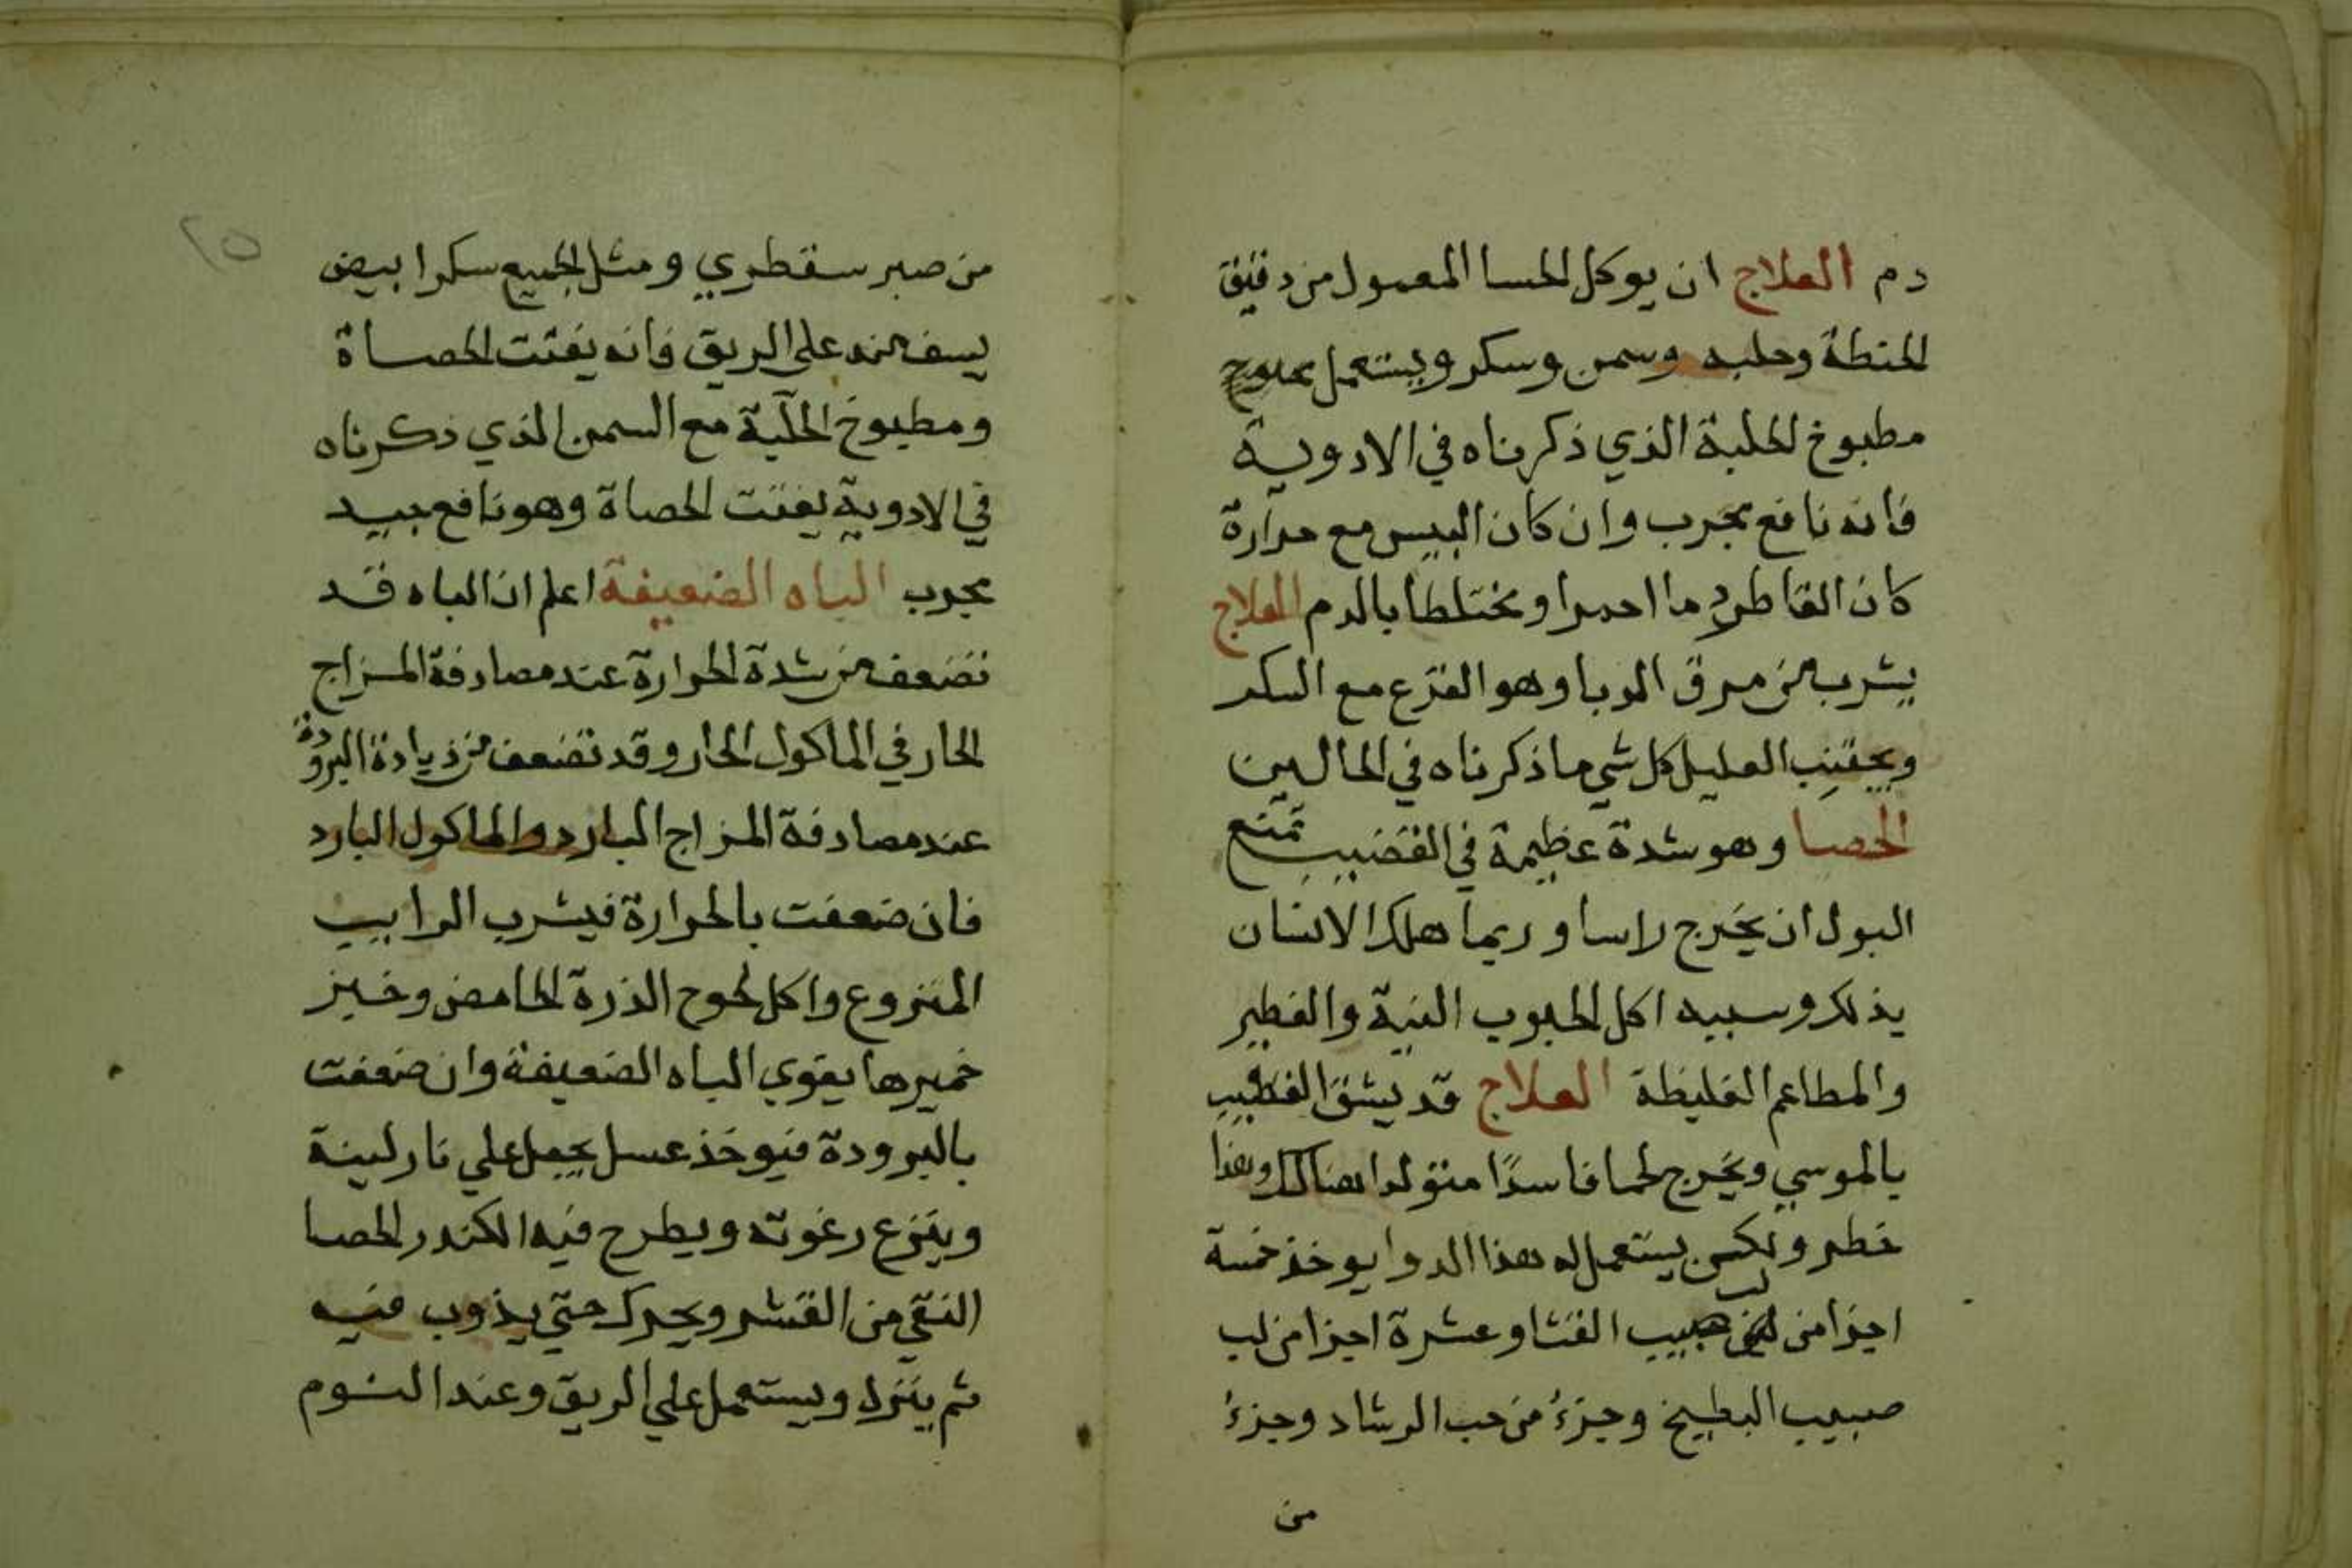 دم العلاج ان يوكل الحسا المعمول من دقيق
الحنطة وحلبه وسمن وسكر ويستعمل
مطبوخ الحلبة الذي ذكرناه في الادوية
فانه نافع مجرب وان كان اليبس مع حرارة
كان القاطر دما احمرا ومختلطا بالدم العلاج
يشرب من مرق الدبا وهو القرع مع السكر
ويجتنب العليل كل شي ما ذكرناه في الحالين
الحصا وهو شدة عظيمة في القضيب تمنع
البول ان يخرج راسا وربما هلك الانسان
بذلك وسببه اكل الحبوب النية والفطير
والمطاعم الغليظة العلاج قد يشق القضيب
بالموسي ويخرج لحما فاسدًا متولدا هناك وهذا
خطر ولكن يستعمل له هذا الدوا يوخذ خمسة
اجزا من لب حبيب القثا وعشرة اجزا من لب
حبيب البطيخ وجزءُ من حب الرشاد وجزءُ
من
٢٥
من صبر سقطري ومثل الجميع سكرا بيض
يسف منه علي الريق فانه يفتت الحصاة
ومطبوخ الحلبة مع السمن الذي ذكرناه
في الادوية يفتت الحصاة وهو نافع بيد
مجرب الباه الضعيفة اعلم ان الباه قد
تضعف من شدة الحرارة عند مصادفة المزاج
الحار في الماكول الحار وقد تضعف من زيادة البرودة
عند مصادفة المزاج البارد والماكول البارد
فان ضعفت بالحرارة فيشرب الرابيب
المنزوع واكل لحوح الذرة الحامض وخبز
خميرها يقوي الباه الضعيفة وان ضعفت
بالبرودة فيوخذ عسل يجعل علي نار لينة
وينزع رغوته ويطرح فيه الكندر الحصا
النقي من القشر ويحرك حتي يذوب فيه
ثم ينزل ويستعمل علي الريق وعند النوم